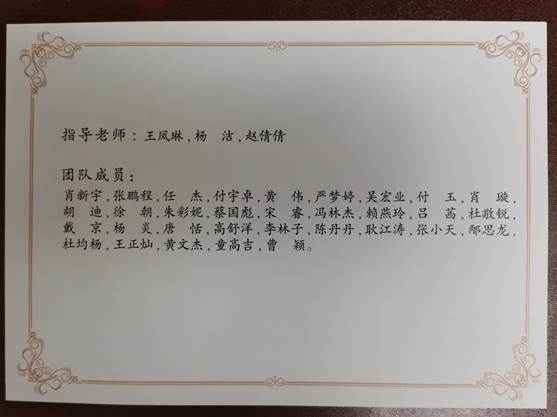 指导老师：王凤琳,杨　洁,赵倩倩
团队成员：
肖新宇,张鹏程,任　杰,付宇卓,黄　伟,严梦婷,吴宏业,付　玉,肖　璇,
胡　迪,徐　朝,朱彩妮,蔡国彪,宋　睿,冯林杰,赖燕玲,吕　茜,杜敬锐,
戴　京,杨　炎,唐　恬,高舒洋,李林子,陈丹丹,耿江涛,张小天,鄢思龙,
杜均杨,王正灿,黄文杰,童高吉,曹　颖。